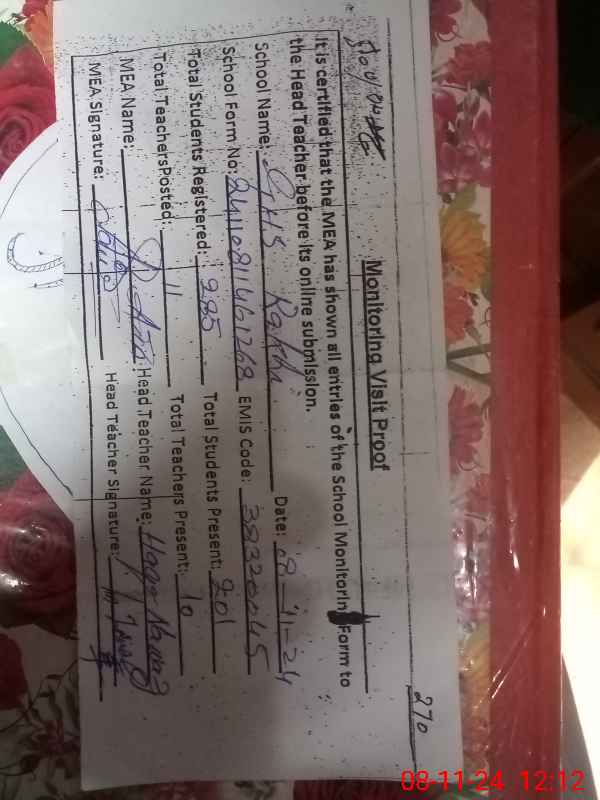 270
Monitoring Visit Proof
It is certified that the MEA has shown all entries of the School Monitorin Form to
the Head Teacher before its online submission.
School Name: GGHS Rakhi Date: 08-11-24
School Form No: 24110811461268 EMIS Code: 38320045
Total Students Registered: 285 Total Students Present: 201
Total TeachersPosted: 11 Total Teachers Present: 10
MEA Name: Head Teacher Name: Nawaz
MEA Signature: Head Teacher Signature:
08-11-24 12:12